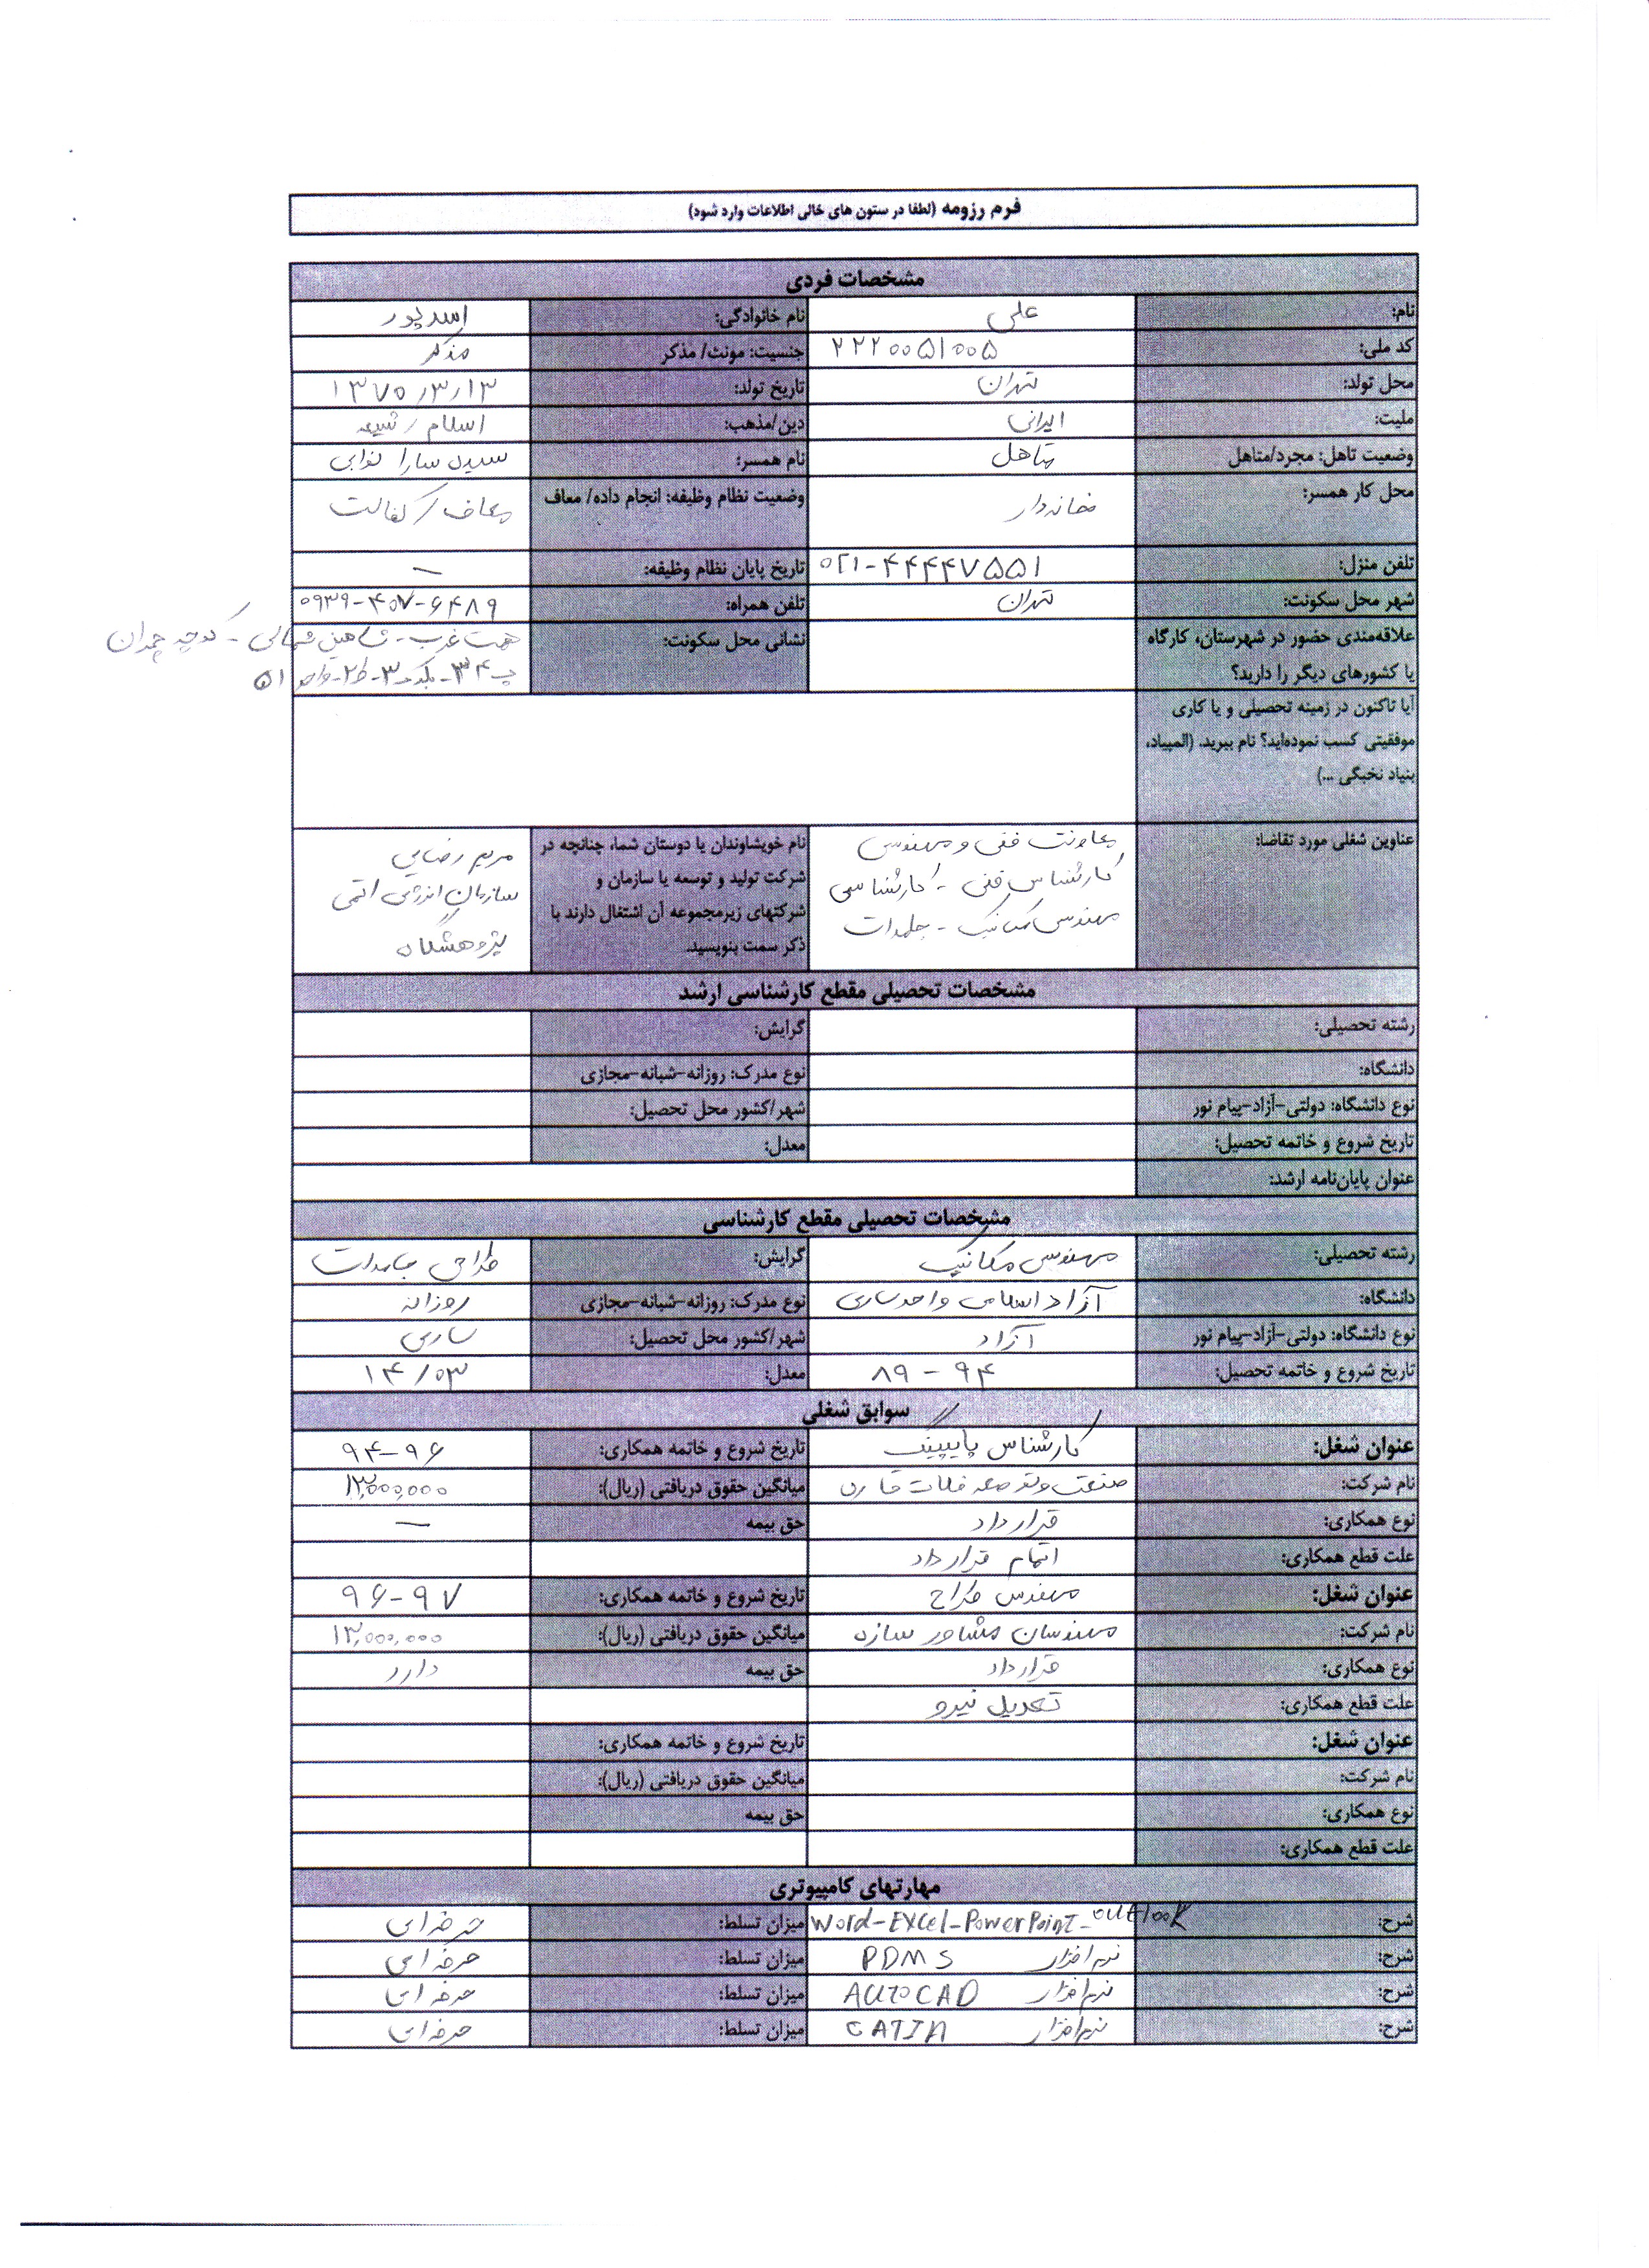 فرم رزومه (لطفا در ستون های خالی اطلاعات وارد شود)
مشخصات فردی
نام: علی نام خانوادگی: اسدپور
کد ملی: ۲۲۲۰۰۵۱۰۰۵ جنسیت: مونث/ مذکر مذکر
محل تولد: تهران تاریخ تولد: ۱۳۷۰/۳/۱۳
ملیت: ایرانی دین/مذهب: اسلام / شیعه
وضعیت تاهل: مجرد/متاهل متاهل نام همسر: سیده سارا نوابی
محل کار همسر: خانه دار وضعیت نظام وظیفه: انجام داده/ معاف معاف / کفالت
تلفن منزل: ۰۲۱-۴۴۴۴۷۵۵۱ تاریخ پایان نظام وظیفه: —
شهر محل سکونت: تهران تلفن همراه: ۰۹۳۹-۴۰۷-۶۴۸۹
علاقه‌مندی حضور در شهرستان، کارگاه نشانی محل سکونت: همت غرب - شاهین شمالی - کوچه چمران
یا کشورهای دیگر را دارید؟ پ ۳۴ - بلوک ۳ - ط ۲ - واحد ۵۱
آیا تاکنون در زمینه تحصیلی و یا کاری
موفقیتی کسب نموده‌اید؟ نام ببرید. (المپیاد،
بنیاد نخبگی ...)
عناوین شغلی مورد تقاضا: معاونت فنی و مهندسی نام خویشاوندان یا دوستان شما، چنانچه در مریم رضایی
کارشناس فنی - کارشناسی شرکت تولید و توسعه یا سازمان و سازمان انرژی اتمی
مهندسی مکانیک - جامدات شرکتهای زیرمجموعه آن اشتغال دارند با پژوهشگاه
ذکر سمت بنویسید.
مشخصات تحصیلی مقطع کارشناسی ارشد
رشته تحصیلی: گرایش:
دانشگاه: نوع مدرک: روزانه-شبانه-مجازی
نوع دانشگاه: دولتی-آزاد-پیام نور شهر/کشور محل تحصیل:
تاریخ شروع و خاتمه تحصیل: معدل:
عنوان پایان‌نامه ارشد:
مشخصات تحصیلی مقطع کارشناسی
رشته تحصیلی: مهندسی مکانیک گرایش: طراحی جامدات
دانشگاه: آزاد اسلامی واحد ساری نوع مدرک: روزانه-شبانه-مجازی روزانه
نوع دانشگاه: دولتی-آزاد-پیام نور آزاد شهر/کشور محل تحصیل: ساری
تاریخ شروع و خاتمه تحصیل: ۸۹ - ۹۴ معدل: ۱۴/۰۳
سوابق شغلی
عنوان شغل: کارشناس پایپینگ تاریخ شروع و خاتمه همکاری: ۹۴-۹۶
نام شرکت: صنعت و توسعه فلات قاره میانگین حقوق دریافتی (ریال): ۱۳,۰۰۰,۰۰۰
نوع همکاری: قرارداد حق بیمه —
علت قطع همکاری: اتمام قرارداد
عنوان شغل: مهندس طراح تاریخ شروع و خاتمه همکاری: ۹۶-۹۷
نام شرکت: مهندسان مشاور سازه میانگین حقوق دریافتی (ریال): ۱۳,۰۰۰,۰۰۰
نوع همکاری: قرارداد حق بیمه دارد
علت قطع همکاری: تعدیل نیرو
عنوان شغل: تاریخ شروع و خاتمه همکاری:
نام شرکت: میانگین حقوق دریافتی (ریال):
نوع همکاری: حق بیمه
علت قطع همکاری:
مهارتهای کامپیوتری
شرح: Word-EXCel-PowerPoint-outlook میزان تسلط: حرفه ای
شرح: نرم افزار PDMS میزان تسلط: حرفه ای
شرح: نرم افزار AUTOCAD میزان تسلط: حرفه ای
شرح: نرم افزار CATIA میزان تسلط: حرفه ای